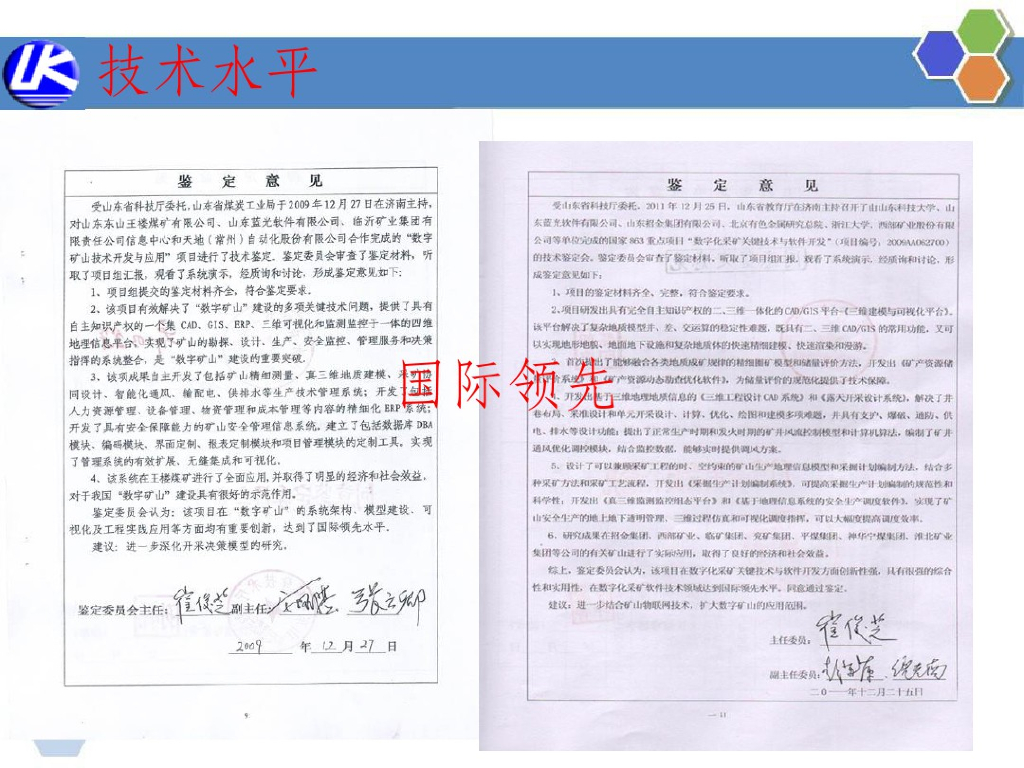 技术水平
鉴 定 意 见
受山东省科技厅委托,山东省煤炭工业局于2009年12月27日在济南主持,
对山东东山王楼煤矿有限公司、山东蓝光软件有限公司、临沂矿业集团有
限责任公司信息中心和天地（常州）自动化股份有限公司合作完成的“数字
矿山技术开发与应用”项目进行了技术鉴定。鉴定委员会审查了鉴定材料，听
取了项目组汇报，观看了系统演示，经质询和讨论，形成鉴定意见如下:
1、项目组提交的鉴定材料齐全，符合鉴定要求。
2、该项目有效解决了“数字矿山”建设的多项关键技术问题，提供了具有
自主知识产权的一个集 CAD、GIS、ERP、三维可视化和监测监控于一体的四维
地理信息平台、实现了矿山的勘探、设计、生产、安全监控、管理服务和决策
指挥的系统整合，是“数字矿山”建设的重要突破。
3、该项成果自主开发了包括矿山精细测量、真三维地质建模、采矿协
同设计、智能化通风、输配电、供排水等生产技术管理系统；开发了包括
人力资源管理、设备管理、物资管理和成本管理等内容的精细化 ERP 系统；
开发了具有安全保障能力的矿山安全管理信息系统。建立了包括数据库 DBA
模块、编码模块、界面定制、报表定制模块和项目管理模块的定制工具，实现
了管理系统的有效扩展、无缝集成和可视化。
4、该系统在王楼煤矿进行了全面应用,并取得了明显的经济和社会效益，
对于我国“数字矿山”建设具有很好的示范作用。
鉴定委员会认为：该项目在“数字矿山”的系统架构、模型建设、可
视化及工程实践应用等方面均有重要创新，达到了国际领先水平。
建议：进一步深化开采决策模型的研究。
鉴定委员会主任: 崔俊芝 副主任:
2009 年 12 月 27 日
9
鉴 定 意 见
受山东省科技厅委托，2011 年 12 月 25 日，山东省教育厅在济南主持召开了由山东科技大学、山
东蓝光软件有限公司、山东招金集团有限公司、北京有色金属研究总院、浙江大学、西部矿业股份有限
公司等单位完成的国家 863 重点项目“数字化采矿关键技术与软件开发”（项目编号：2009AA062700）
的技术鉴定会。鉴定委员会审查了鉴定材料、听取了项目组汇报、观看了系统演示、经质询和讨论，形
成鉴定意见如下：
1、项目的鉴定材料齐全、完整，符合鉴定要求。
2、项目研发出具有完全自主知识产权的二、三维一体化的 CAD/GIS 平台《三维建模与可视化平台》。
该平台解决了复杂地质模型并、差、交运算的稳定性难题，既具有二、三维 CAD/GIS 的常用功能，又可
以实现地形地貌、地面地下设施和复杂地质体的快速精细建模、快速渲染和漫游。
首次提出了能够融合各类地质成矿规律的精细圈矿模型和储量评价方法，开发出《矿产资源储
量评价系统》和《矿产资源动态勘查优化软件》，为储量评价的规范化提供了技术保障。
开发出基于三维地理地质信息的《三维工程设计 CAD 系统》和《露天开采设计系统》，解决了井
巷布局、采准设计和单元开采设计、计算、优化、绘图和建模多项难题，并具有支护、爆破、通防、供
电、排水等设计功能；提出了正常生产时期和发火时期的矿井风流控制模型和计算机算法，编制了矿井
通风优化调控模块，结合监控数据，能够实时提供调风方案。
5、设计了可以兼顾采矿工程的时、空约束的矿山生产地理信息模型和采掘计划编制方法，结合多
种采矿方法和采矿工艺流程，开发出《采掘计划编制系统》，可提高采掘生产计划编制的规范性和
科学性；开发出《真三维监测监控组态平台》和《基于地理信息系统的安全生产调度软件》，实现了矿
山安全生产的地上地下透明管理、三维过程仿真和可视化调度指挥，可以大幅度提高调度效率。
6、研究成果在招金集团、西部矿业、临矿集团、兖矿集团、平煤集团、神华宁煤集团、淮北矿业
集团等公司的有关矿山进行了实际应用，取得了良好的经济和社会效益。
综上，鉴定委员会认为，该项目在数字化采矿关键技术与软件开发方面创新性强，具有很强的综合
性和实用性，在数字化采矿软件技术领域达到国际领先水平。同意通过鉴定。
建议：进一步结合矿山物联网技术，扩大数字矿山的应用范围。
主任委员: 崔俊芝
副主任委员:
二〇一一年十二月二十五日
— 11
国际领先